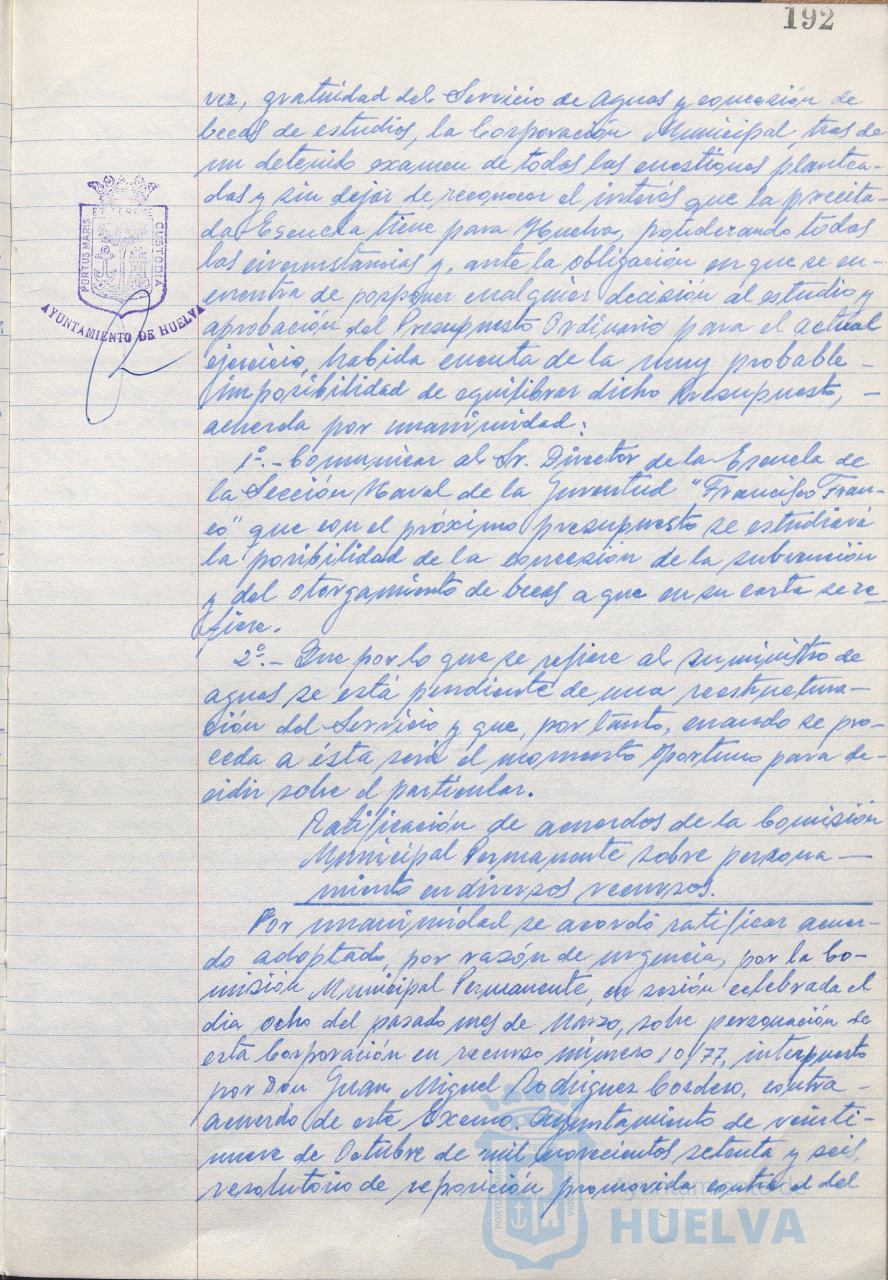 192
vez, gratuidad del Servicio de Aguas y concesión de
becas de estudios, la Corporación Municipal, tras de
un detenido examen de todas las cuestiones plantea-
das y sin dejar de reconocer el interés que la precita-
da Escuela tiene para Huelva, ponderando todas
las circunstancias y, ante la obligación en que se en-
cuentra de posponer cualquier decisión al estudio y
aprobación del Presupuesto Ordinario para el actual
ejercicio, habida cuenta de la muy probable -
imposibilidad de equilibrar dicho Presupuesto, -
acuerda por unanimidad:
1º.- Comunicar al Sr. Director de la Escuela de
la Sección Naval de la Juventud "Francisco Fran-
co" que con el próximo presupuesto se estudiará
la posibilidad de la concesión de la subvención
y del otorgamiento de becas a que en su carta se re-
fiere.
2º.- Que por lo que se refiere al suministro de
aguas se está pendiente de una reestructura-
ción del Servicio y que, por tanto, cuando se pro-
ceda a ésta será el momento oportuno para de-
cidir sobre el particular.
Ratificación de acuerdos de la Comisión
Municipal Permanente sobre persona-
miento en diversos recursos.
Por unanimidad se acordó ratificar acuer-
do adoptado, por razón de urgencia, por la Co-
misión Municipal Permanente, en sesión celebrada el
día ocho del pasado mes de Marzo, sobre personación de
esta Corporación en recurso número 10/77, interpuesto
por Don Juan Miguel Rodriguez Cordero, contra -
acuerdo de este Excmo. Ayuntamiento de veinti-
nueve de Octubre de mil novecientos setenta y seis,
resolutorio de reposición promovida contra el del
PORTUS MARIS ET TERRAE CUSTODIA
AYUNTAMIENTO DE HUELVA
Ayuntamiento de
HUELVA